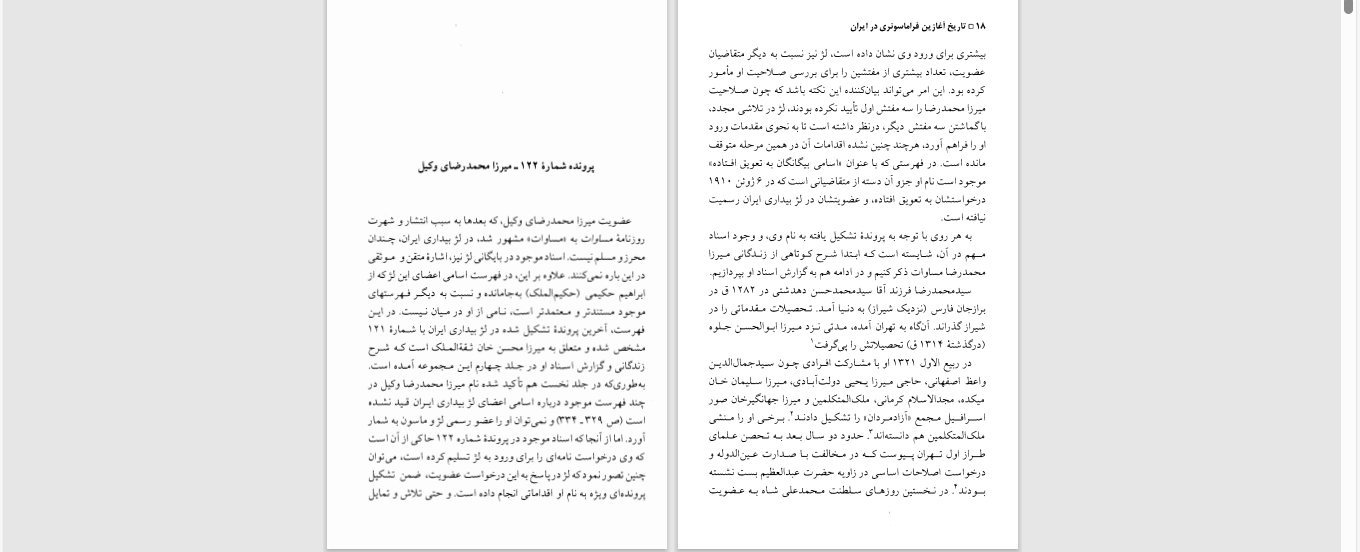 پرونده شمارهٔ ۱۲۲ ـ میرزا محمدرضای وکیل
عضویت میرزا محمدرضای وکیل، که بعدها به سبب انتشار و شهرت
روزنامهٔ مساوات به «مساوات» مشهور شد، در لژ بیداری ایران، چندان
محرز و مسلم نیست. اسناد موجود در بایگانی لژ نیز، اشارهٔ متقن و موثقی
در این باره نمی‌کنند. علاوه بر این، در فهرست اسامی اعضای این لژ که از
ابراهیم حکیمی (حکیم‌الملک) به‌جامانده و نسبت به دیگر فهرستهای
موجود مستندتر و معتمدتر است، نامی از او در میان نیست. در این
فهرست، آخرین پروندهٔ تشکیل شده در لژ بیداری ایران با شمارهٔ ۱۲۱
مشخص شده و متعلق به میرزا محسن خان ثقةالملک است که شرح
زندگانی و گزارش اسناد او در جلد چهارم این مجموعه آمده است.
به‌طوری‌که در جلد نخست هم تأکید شده نام میرزا محمدرضا وکیل در
چند فهرست موجود درباره اسامی اعضای لژ بیداری ایران قید نشده
است (ص ۳۲۹ ـ ۳۳۴) و نمی‌توان او را عضو رسمی لژ و ماسون به شمار
آورد. اما از آنجا که اسناد موجود در پروندهٔ شماره ۱۲۲ حاکی از آن است
که وی درخواست نامه‌ای را برای ورود به لژ تسلیم کرده است، می‌توان
چنین تصور نمود که لژ در پاسخ به این درخواست عضویت، ضمن تشکیل
پرونده‌ای ویژه به نام او اقداماتی انجام داده است. و حتی تلاش و تمایل
۱۸ □ تاریخ آغازین فراماسونری در ایران
بیشتری برای ورود وی نشان داده است، لژ نیز نسبت به دیگر متقاضیان
عضویت، تعداد بیشتری از مفتشین را برای بررسی صلاحیت او مأمور
کرده بود. این امر می‌تواند بیان‌کننده این نکته باشد که چون صلاحیت
میرزا محمدرضا را سه مفتش اول تأیید نکرده بودند، لژ در تلاشی مجدد،
با گماشتن سه مفتش دیگر، درنظر داشته است تا به نحوی مقدمات ورود
او را فراهم آورد، هرچند چنین نشده اقدامات آن در همین مرحله متوقف
مانده است. در فهرستی که با عنوان «اسامی بیگانگان به تعویق افتاده»
موجود است نام او جزو آن دسته از متقاضیانی است که در ۶ ژوئن ۱۹۱۰
درخواستشان به تعویق افتاده، و عضویتشان در لژ بیداری ایران رسمیت
نیافته است.
به هر روی با توجه به پروندهٔ تشکیل یافته به نام وی، و وجود اسناد
مهم در آن، شایسته است که ابتدا شرح کوتاهی از زندگانی میرزا
محمدرضا مساوات ذکر کنیم و در ادامه هم به گزارش اسناد او بپردازیم.
سیدمحمدرضا فرزند آقا سیدمحمدحسن دهدشتی در ۱۲۸۲ ق در
برازجان فارس (نزدیک شیراز) به دنیا آمد. تحصیلات مقدماتی را در
شیراز گذراند. آن‌گاه به تهران آمده، مدتی نزد میرزا ابوالحسن جلوه
(درگذشتهٔ ۱۳۱۴ ق) تحصیلاتش را پی‌گرفت۱
در ربیع الاول ۱۳۲۱ او با مشارکت افرادی چون سیدجمال‌الدین
واعظ اصفهانی، حاجی میرزا یحیی دولت‌آبادی، میرزا سلیمان خان
میکده، مجدالاسلام کرمانی، ملک‌المتکلمین و میرزا جهانگیرخان صور
اسرافیل مجمع «آزادمردان» را تشکیل دادند۲. برخی او را منشی
ملک‌المتکلمین هم دانسته‌اند۳. حدود دو سال بعد به تحصن علمای
طراز اول تهران پیوست که در مخالفت با صدارت عین‌الدوله و
درخواست اصلاحات اساسی در زاویه حضرت عبدالعظیم بست نشسته
بودند۴. در نخستین روزهای سلطنت محمدعلی شاه به عضویت